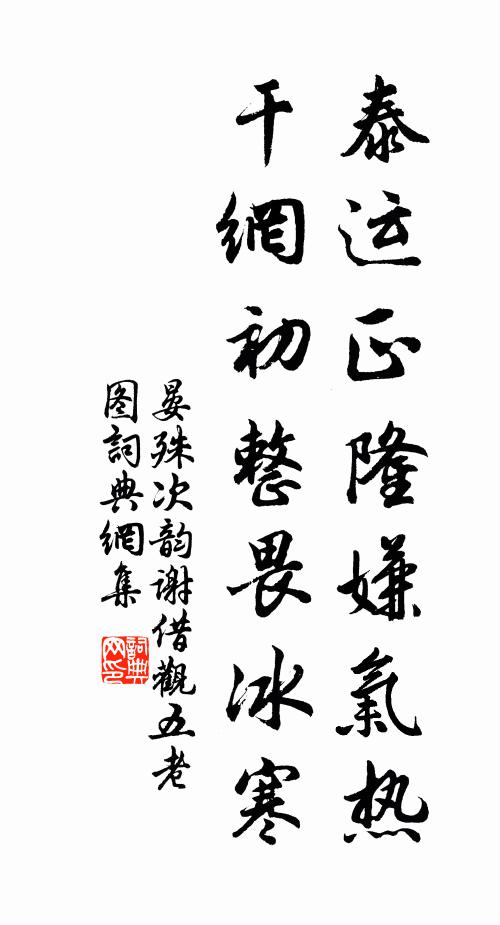 泰运正隆嫌氣热
干網初整畏冰寒
晏殊次韵謝借觀五老
图詞典網集
詞典网印